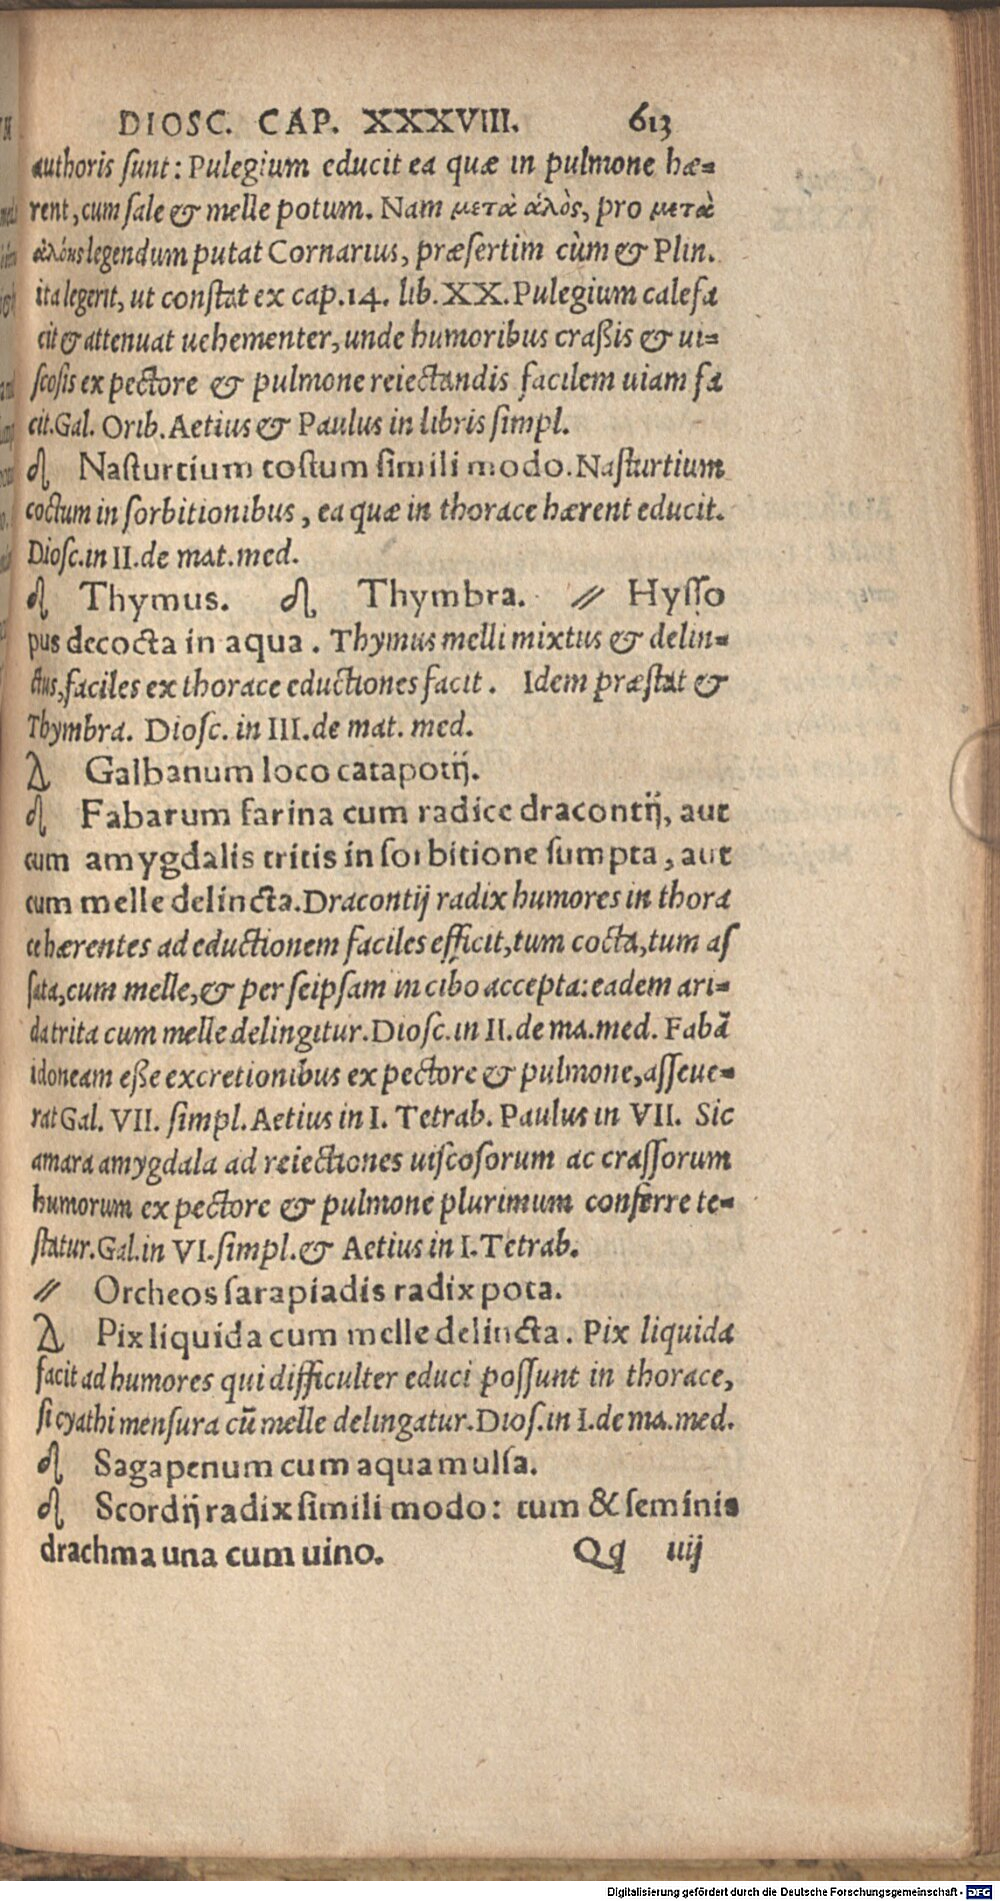 DIOSC. CAP. XXXVIII. 613
authoris sunt: Pulegium educit ea quæ in pulmone hæ-
rent, cum sale & melle potum. Nam μετὰ ἁλὸς, pro μετὰ
ἀλόης legendum putat Cornarius, præsertim cùm & Plin.
ita legerit, ut constat ex cap. 14. lib. XX. Pulegium calefa
cit & attenuat uehementer, unde humoribus craßis & ui-
scosis ex pectore & pulmone reiectandis facilem uiam fa
cit. Gal. Orib. Aetius & Paulus in libris simpl.
♌ Nasturtium tostum simili modo. Nasturtium
coctum in sorbitionibus, ea quæ in thorace hærent educit.
Diosc. in II. de mat. med.
♌ Thymus. ♌ Thymbra. // Hysso
pus decocta in aqua. Thymus melli mixtus & delin-
ctus, faciles ex thorace eductiones facit. Idem præstat &
Thymbra. Diosc. in III. de mat. med.
Galbanum loco catapotij.
♌ Fabarum farina cum radice dracontij, aut
cum amygdalis tritis in sorbitione sumpta, aut
cum melle delincta. Dracontij radix humores in thora
ce hærentes ad eductionem faciles efficit, tum cocta, tum as
sata, cum melle, & per seipsam in cibo accepta: eadem ari-
da trita cum melle delingitur. Diosc. in II. de ma. med. Fabã
idoneam eße excretionibus ex pectore & pulmone, asseue-
rat Gal. VII. simpl. Aetius in I. Tetrab. Paulus in VII. Sic
amara amygdala ad reiectiones uiscosorum ac crassorum
humorum ex pectore & pulmone plurimum conferre te-
statur. Gal. in VI. simpl. & Aetius in I. Tetrab.
// Orcheos sarapiadis radix pota.
Pix liquida cum melle delincta. Pix liquida
facit ad humores qui difficulter educi possunt in thorace,
si cyathi mensura cū melle delingatur. Dios. in I. de ma. med.
♌ Sagapenum cum aqua mulsa.
♌ Scordij radix simili modo: tum & seminis
drachma una cum uino. Qq iiij
Digitalisierung gefördert durch die Deutsche Forschungsgemeinschaft - DFG